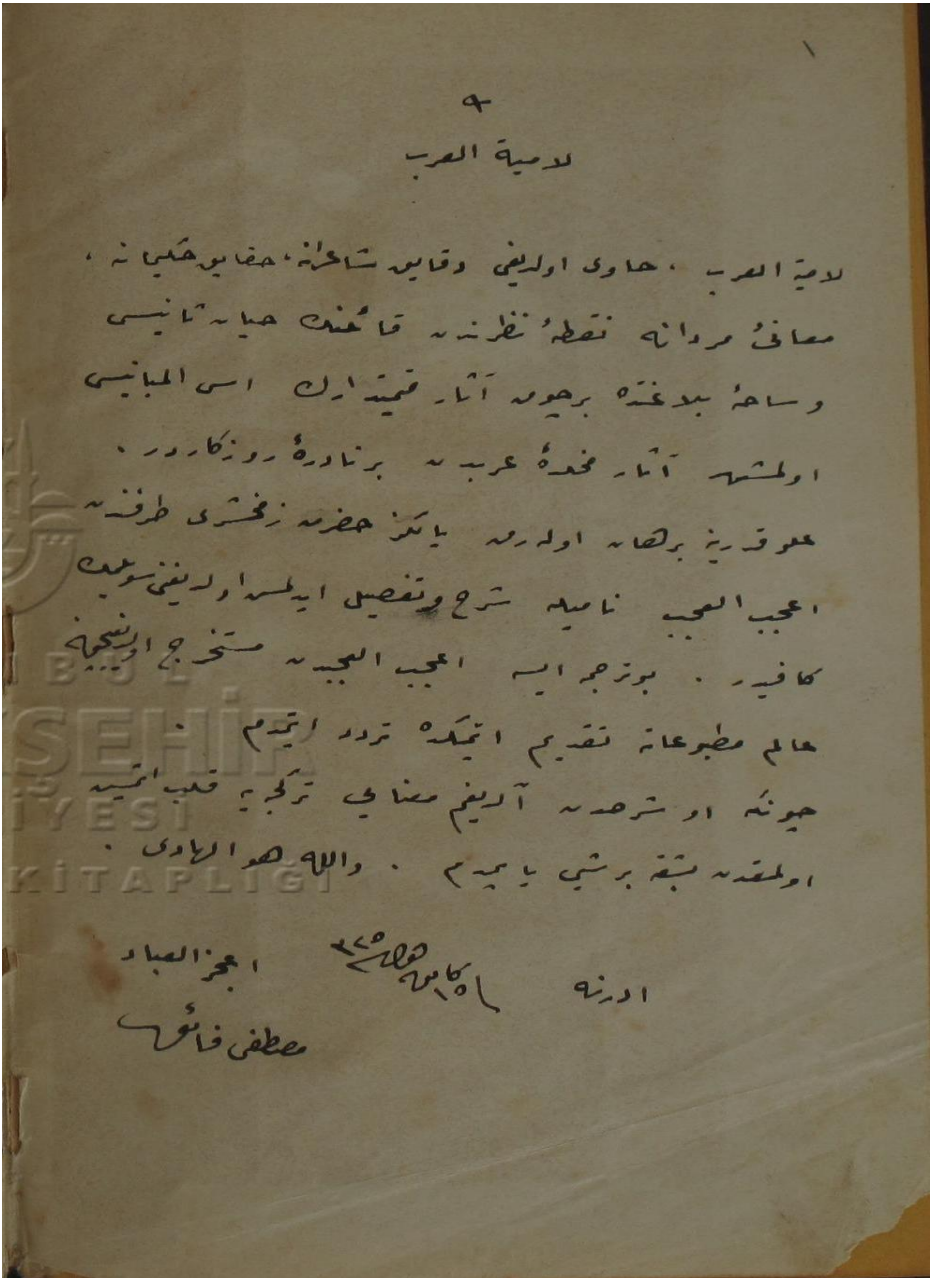 ١
لامية العرب
لامية العرب ، حاوى اولديغى دقايق شاعرانه ، حقايق حكيمانه ،
معانئ مردانه نقطۀ نظرندن قائلنك حيات ثانيسى
وساحۀ بلاغتده برچوق آثار قيمتدارك اس المبانيسى
اولمشدر آثار مخلدۀ عربدن بر نادرۀ روزكاردر .
علو قدرينه برهان اوله رق يالكز حضرت زمخشرى طرفندن
اعجب العجب ناميله شرح وتفصيل ايدلمش اولديغنى سويلمك
كافيدر . بو ترجمه ايسه اعجب العجبدن مستخرج اولديغيچون
عالم مطبوعاته تقديم ايتمكده تردد ايتمدم .
چونكه او شرحدن آلديغم معنايى تركجه يه قلب ايتمش
اولمقدن بشقه برشى ياپمدم . والله هو الهادى .
ادرنه ١٥ ٣٢٥ اعجز العباد
مصطفى فائق
İBUL
KŞEHİR
İYESİ
KİTAPLIĞI